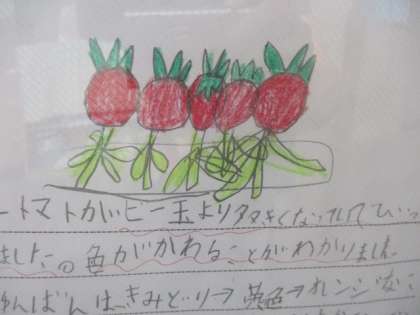 ートマトがいビー玉より大きくなっていてひ
ました。の色がかわることがわかりました。
ゅんばんは、きみどり→黄色→オレンジ色